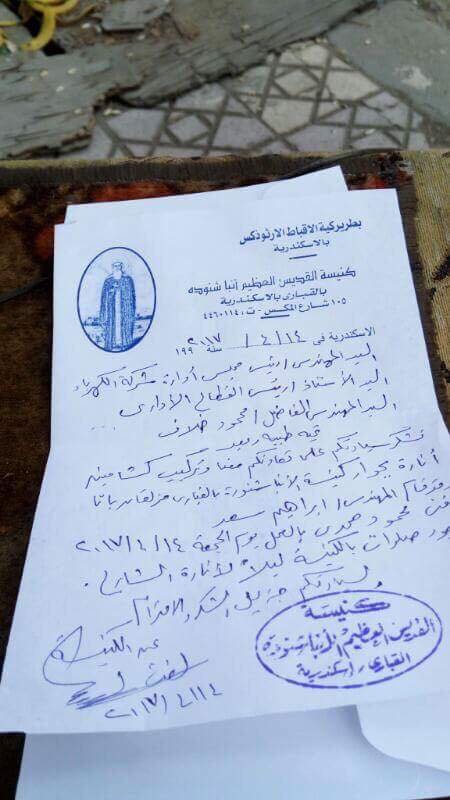 بطريركية الاقباط الارثوذكس
بالاسكندرية
كنيسة القديس العظيم انبا شنوده
بالقبارى بالاسكندرية
١٠٥ شارع المكس - ت : ٤٤٦٠١١٤
الاسكندرية فى ١٤ / ٤ / ٢٠١٧ سنة ١٩٩
السيد المهندس / رئيس مجلس أدارة شركة الكهرباء
السيد الأستاذ / رئيس القطاع الأدارى
السيد المهندس الفاضل / محمود خلاف
تحية طيبه وبعد
نشكر سيادتكم على تعاونكم معنا وتركيب كشافين
أنارة بجوار كنيسة الانبا شنودة بالقبارى
وقام المهندس / ابراهيم سعد
محمود حمدى بالعمل يوم الجمعة ١٤ / ٤ / ٢٠١٧
صلوات بالكنيسة ليلاً لأنارة الشارع .
ولسيادتكم جزيل الشكر والاحترام
عن الكنيسة
٢٠١٧/٤/١٤
كنيسة
القديس العظيم الأنبا شنوده
القبارى / إسكندرية